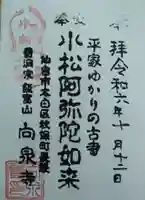 奉拝 令和六年十月十二日
平家ゆかりの古書
小松阿弥陀如来
仙台市太白区秋保町長袋
曹洞宗 飯富山 向泉寺